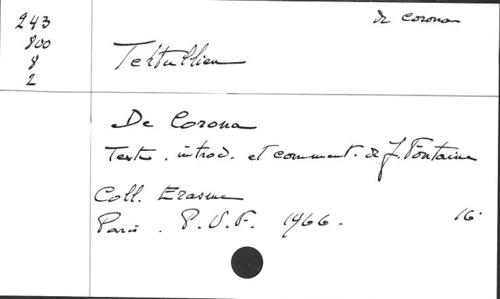 de Corona
243
800
8
2
Tertullien
De Corona
Texte, introd. et comment. de J. Fontaine
Coll. Erasme
Paris. P.U.F. 1966. 16.